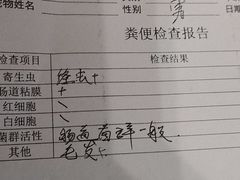 宠物姓名 性别 男
粪便检查报告
检查项目 检查结果
寄生虫 绦虫+
肠道粘膜 +
红细胞 \
白细胞 \
菌群活性 肠道菌群一般.
其他